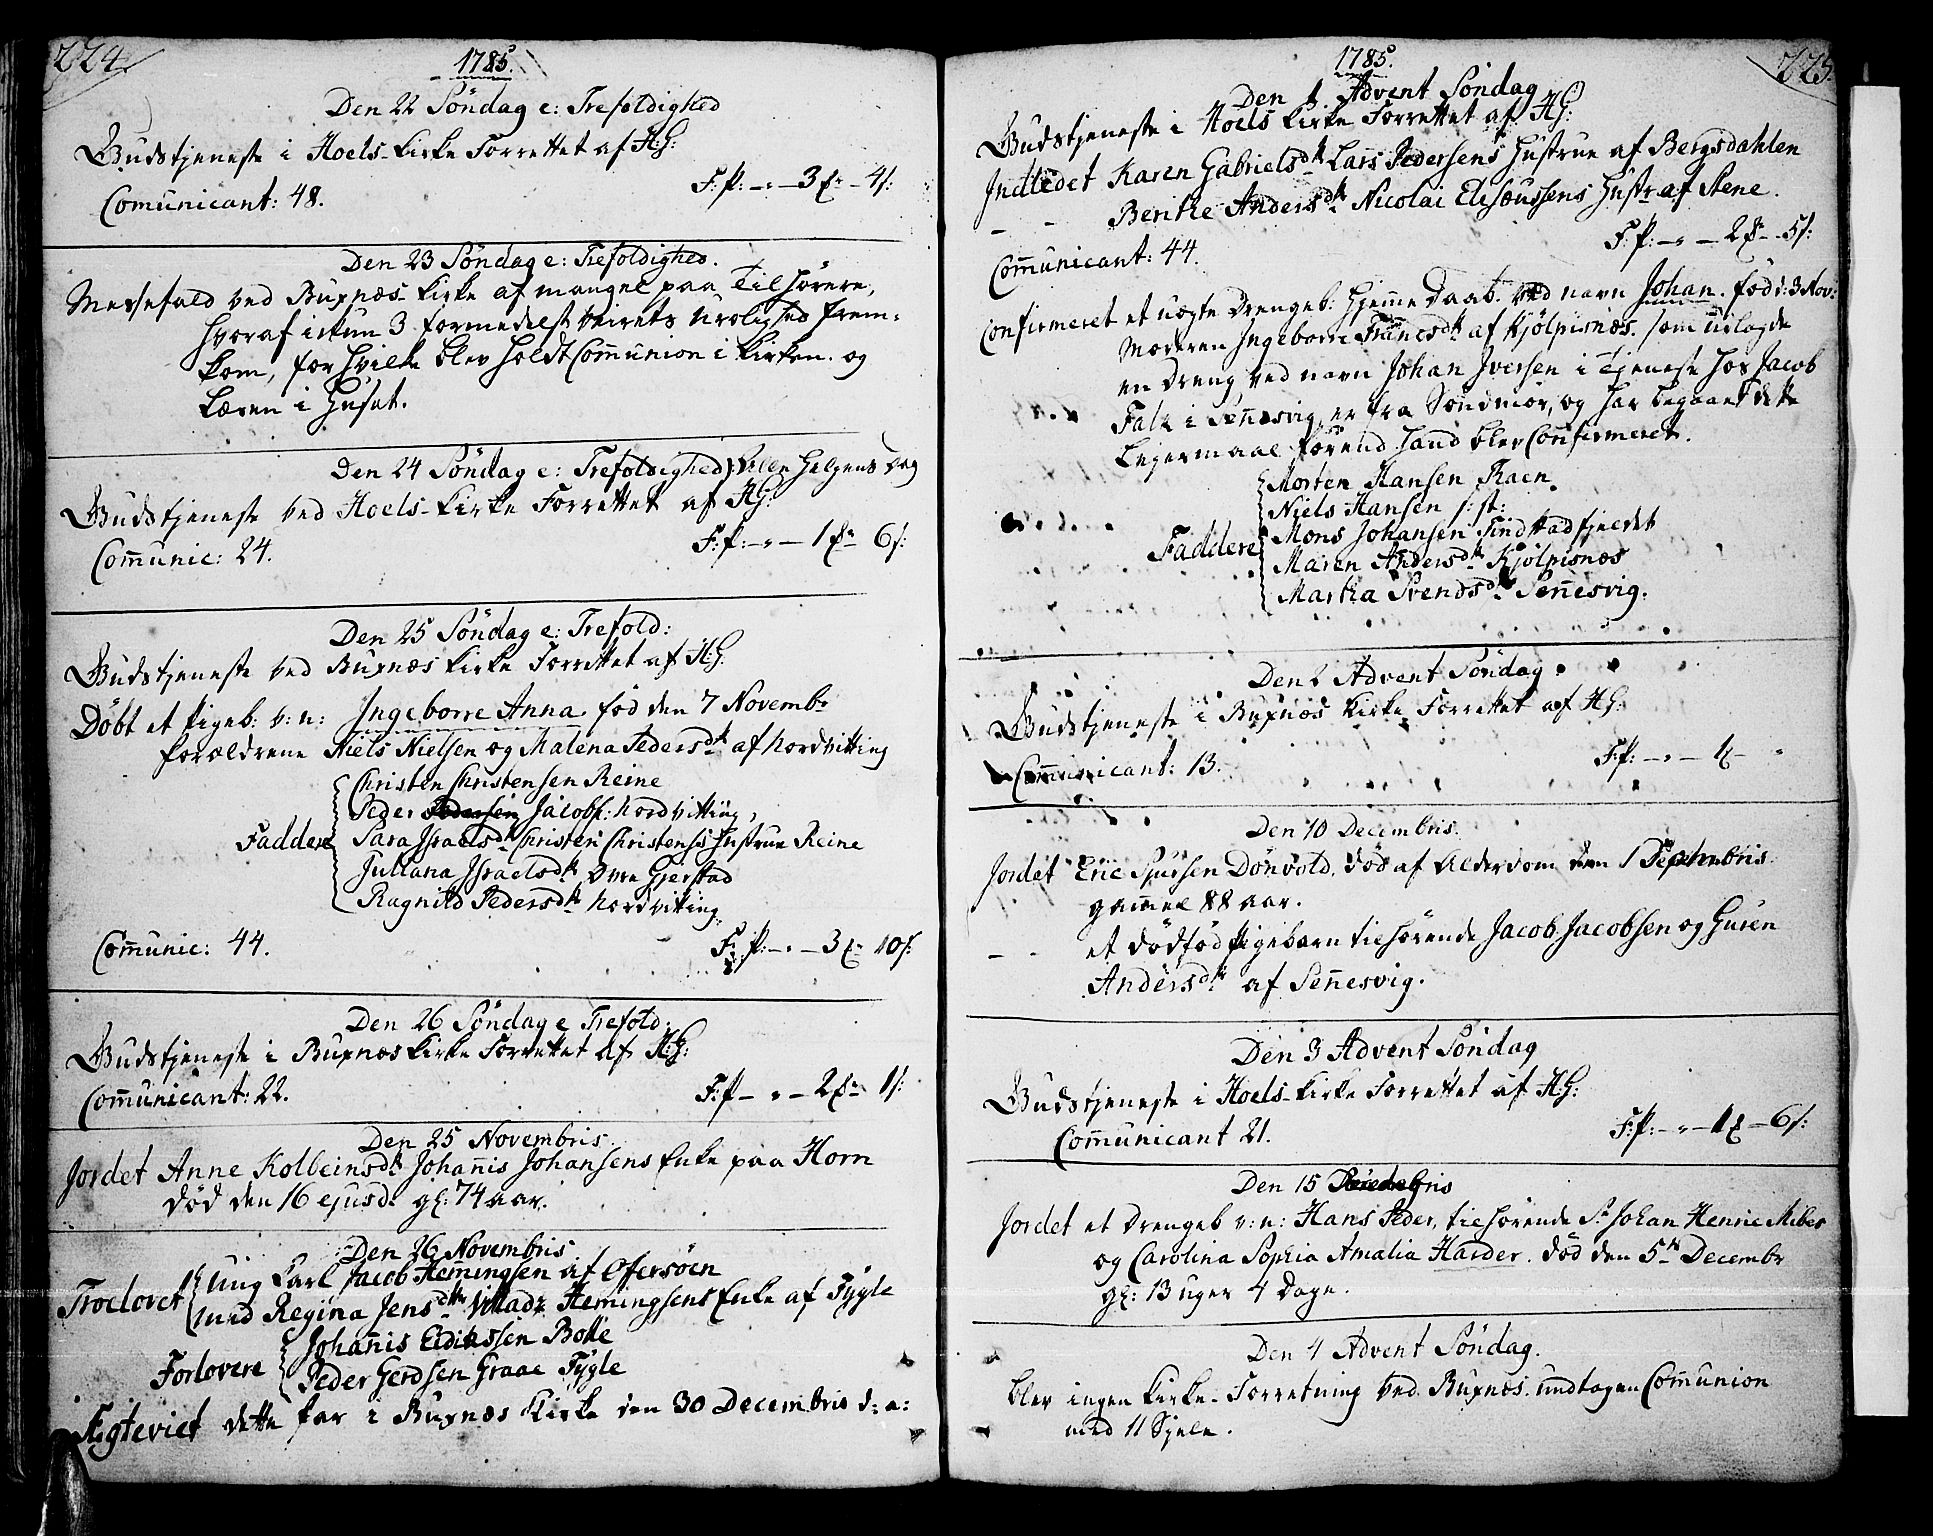 224
1785.
Den 22 Söndag e: Trefoldighed
Gudstjeneste i Hoels-Kirke Forrettet af HG:
F:P: -"- 3 - 4 s:
Comunicant: 48.
Den 23 Söndag e: Trefoldighed.
Messefald ved Buxnæs Kirke af mangel paa Tilhörere,
hvoraf ikun 3 formedelst veirets Urolighed frem-
kom, for hvilke blev holdt Communion i Kirken. og
Læren i Huset.
Den 24 Söndag e: Trefoldighed, Alle Helgens Dag
Gudstjeneste ved Hoels-Kirke Forrettet af HG:
F:P: -"- 1 6 s:
Com̄unic: 24.
Den 25 Söndag e: Trefold:
Gudstjeneste ved Buxnæs Kirke Forrettet af H:G.
Döbt et Pigeb: v: n: Ingeborre Anna. föd den 7 Novembr
forældrene Niels Nielsen og Malena Pedersdtr af Nordvitting
Christen Christensen Reine
Peder Pedersen Jacobs: Nordvitting,
Faddere Sara Israelsdtr Christen Christens's Hustrue Reine
Juliana Israelsdtr Övre Gjerstad
Ragnild Pedersdtr Nordvitting
Com̄unic: 44.
F:P: -"- 3 10 s:
Den 26 Söndag e Trefold:
Gudstjeneste i Buxnæs Kirke Forrettet af H:G:
Com̄unicant: 22.
F:P - " - 2 - 1 s:
Den 25 Novembris.
Jordet Anne Kolbeinsdtr Johan̄is Johansens Enke paa Horn
död den 16 ejusd: gl: 74 aar.
Den 26 Novembris
Troelovet ung Karl Jacob Hem̄ingsen af Offersöen
med Regina Jensdtr Hemingsens Enke af Fygle
Johan̄is Bolle
Forlovere Peder Gerdsen Graae Fygle
Ægteviet dette par i Buxnæs Kirke den 30 Decembris d: a:
1785.
225
Den 1. Advent Söndag
Gudstjeneste i Hoels Kirke Forrettet af HG:
Indledet Karen Gabrielsdtr Lars Pedersens Hustrue af Bergsdahlen
- - Benthe Andersdtr Nicolai Elisæussens Hustr af Stene.
F:P: -"- 2 - 5 s:
Com̄unicant: 44.
Confirmeret et uægte Drengeb: hjem̄e Daabt. ved navn Johan. föd d: 3 Nov:
Moderen Ingeborre Francsdtr af Kjölpisnæs. som udlagde
en Dreng ved navn Johan Iversen i Tjeneste hos Jacob
Falk i Sen̄esvig, er fra Söndmör, og har begaaet dette
Lejermaal förend hand blev Confirmeret.
Morten Hansen Raen
Niels Hansen s: st:
Faddere Mons Johansen Tindstadfjeldet
Maren Andersdtr Kjölpisnæs
Martha Svendsdtr Sen̄esvig.
Den 2 Advent Söndag
Gudstjeneste i Buxnæs Kirke Forrettet af HG:
F:P: -"- 1 - "
Com̄unicant: 13.
Den 10 Decembris.
Jordet Eric Sjursen Dönvold. död af Alderdom den 1 Decembris
gam̄el 88 aar.
- - et dödföd Pigebarn tilhörende Jacob Jacobsen og Guren
Andersdtr af Sen̄esvig.
Den 3 Advent Söndag
Gudstjeneste i Hoels-Kirke Forrettet af HG:
F:P: -"- 1 - 6 s:
Com̄unicant 21.
Den 15 Decembris
Jordet et Drengeb v: n: Hans Peder, tilhörende Sr Johan Henric Mibes
og Carolina Sophia Amalia Harder. död den 5te Decembr
gl: 13 uger 4 Dage.
Den 4 Advent Söndag.
blev ingen Kirke-Forretning ved Buxnæs. undtagen Com̄union
med 11 Sjele.